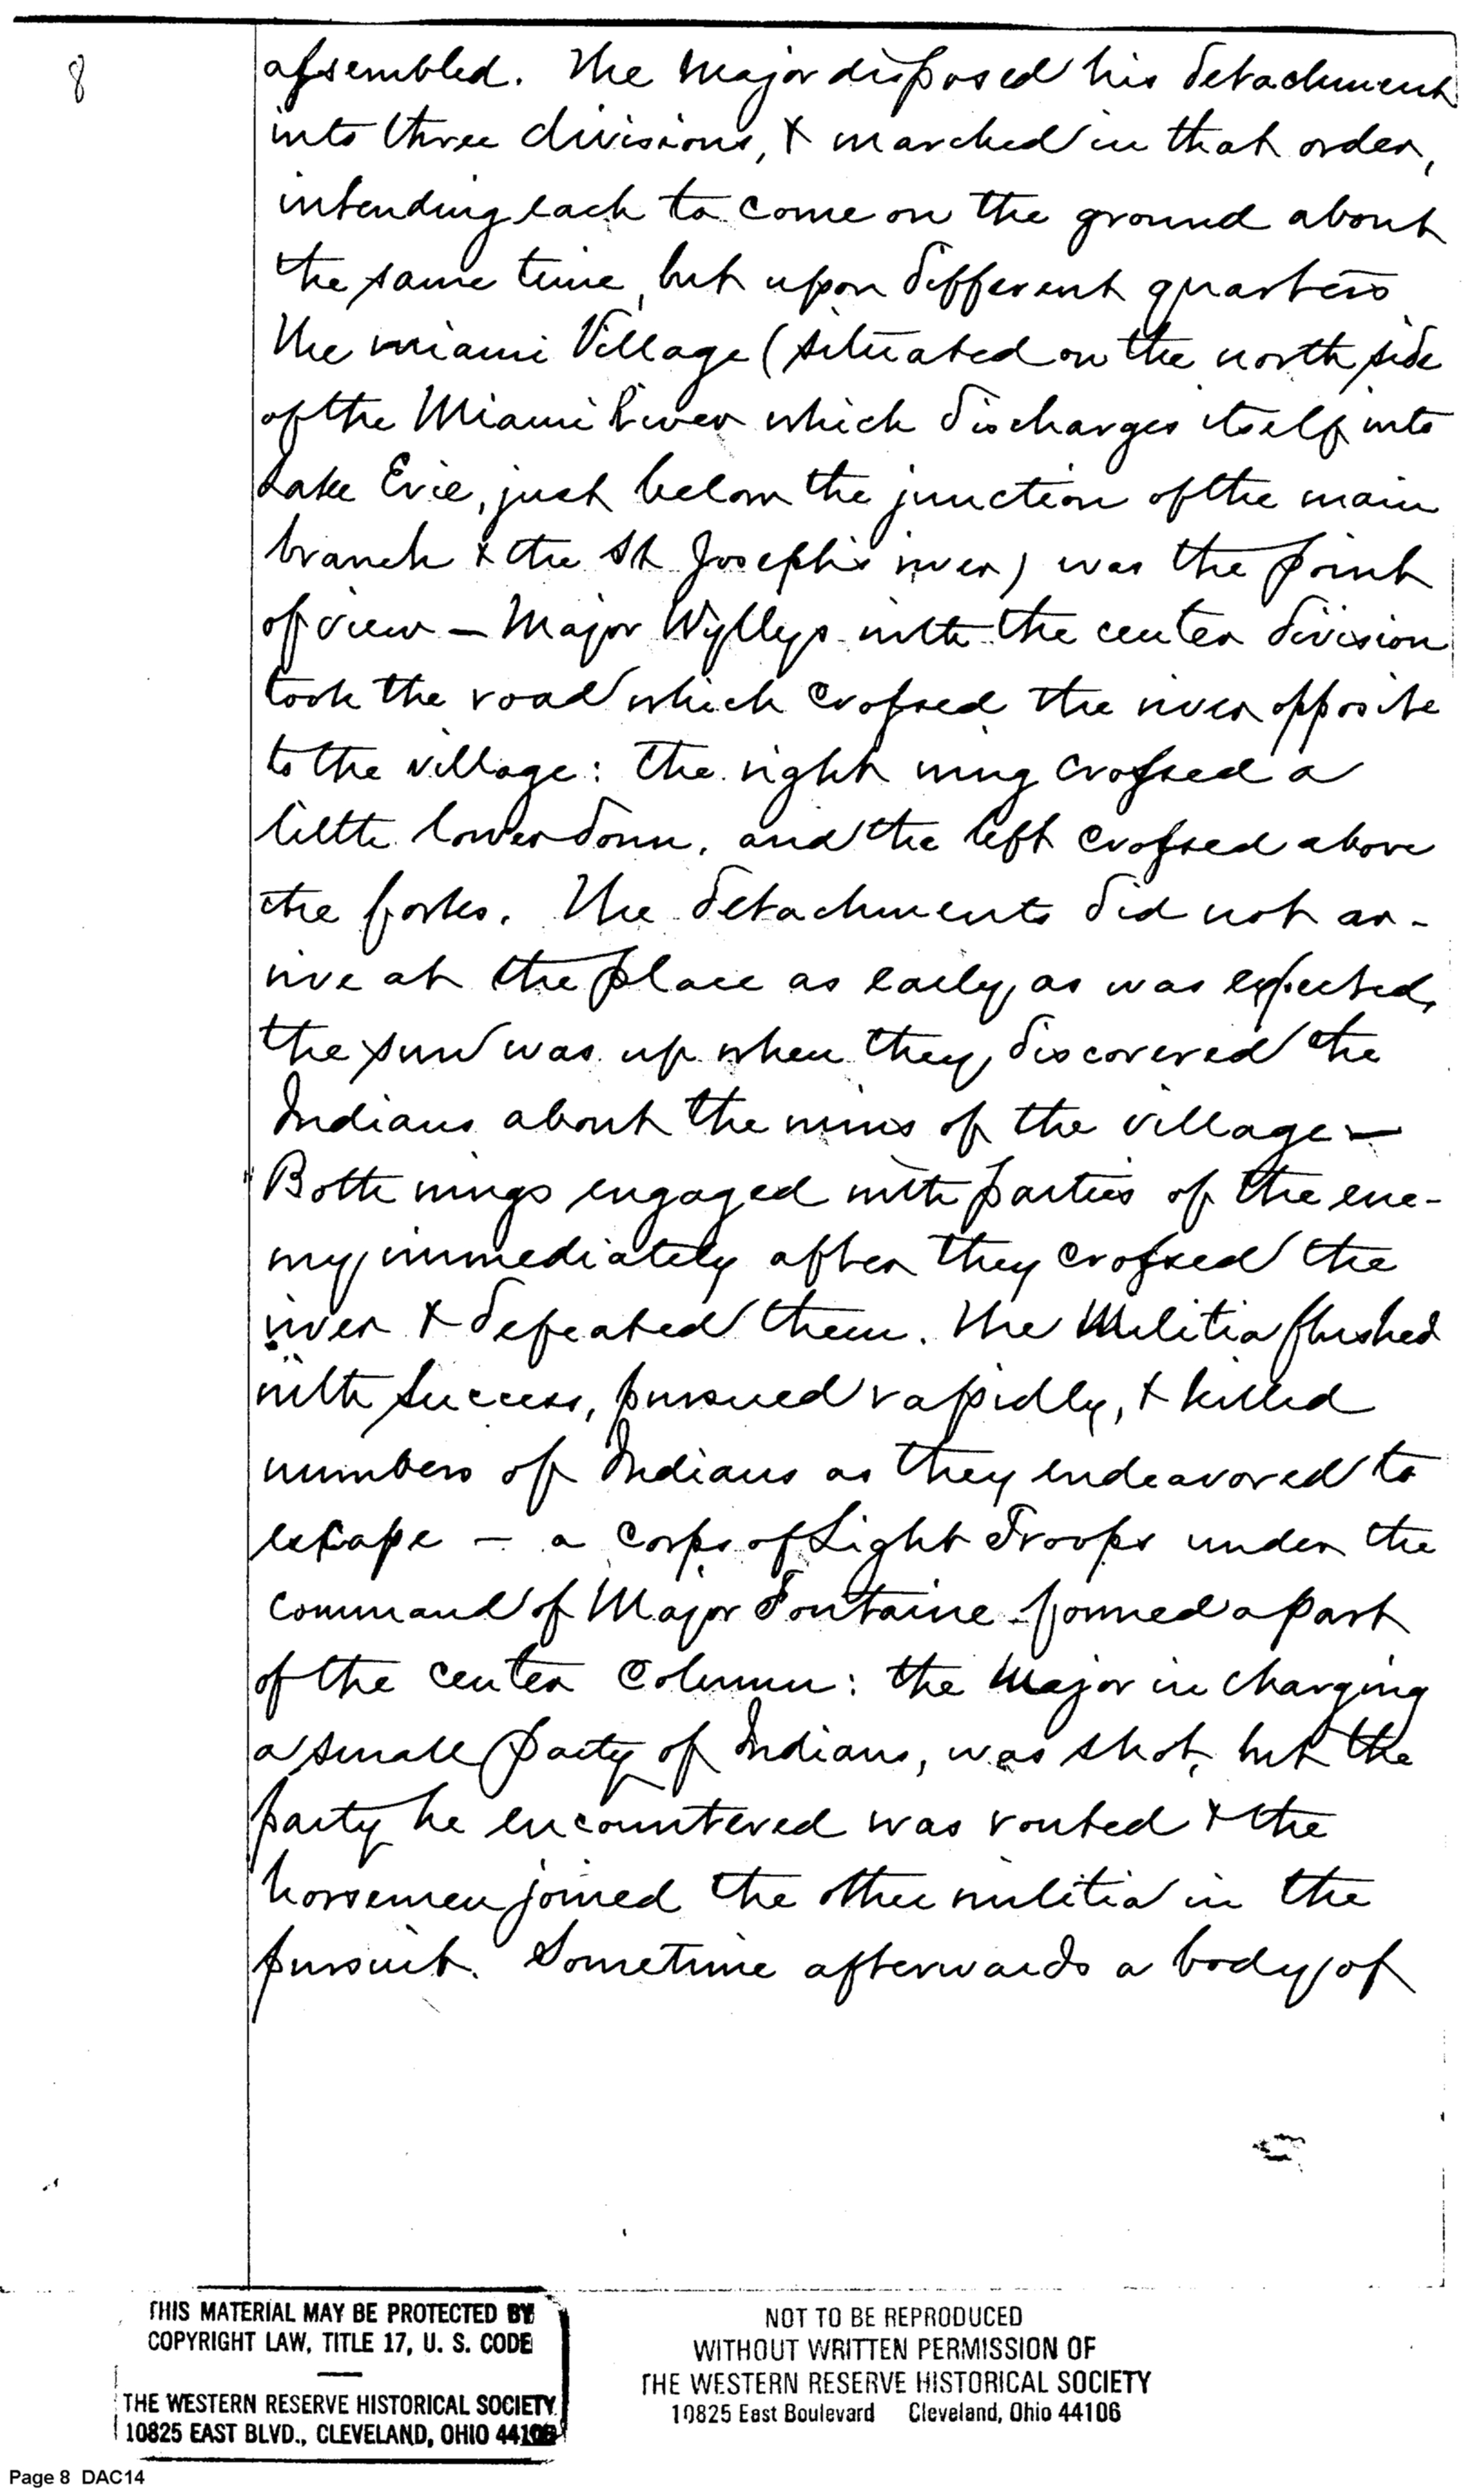 8
assembled. The Major disposed his detachment
into three divisions, & marched in that order,
intending each to come on the ground about
the same time, but upon different quarters
The Miami Village (situated on the north side
of the Miami River which discharges itself into
Lake Erie, just below the junction of the main
branch & the St Joseph's river) was the point
of view — Major Wyllys with the center division
took the road which crossed the river opposite
to the village: the right wing crossed a
little lower down, and the left crossed above
the forks. The detachments did not ar-
rive at the place as early, as was expected,
the sun was up when they discovered the
Indians about the ruins of the village —
Both wings engaged with parties of the ene-
my immediately after they crossed the
river & defeated them. The Militia flushed
with success, pursued rapidly, & killed
numbers of Indians as they endeavored to
escape — a Corps of Light Troops under the
command of Major Fontaine formed a part
of the center Column: the Major in charging
a small party of Indians, was shot, but the
party he encountered was routed & the
horsemen joined the other militia in the
pursuit. Sometime afterwards a body of
THIS MATERIAL MAY BE PROTECTED BY
COPYRIGHT LAW, TITLE 17, U. S. CODE
THE WESTERN RESERVE HISTORICAL SOCIETY
10825 EAST BLVD., CLEVELAND, OHIO 44106
NOT TO BE REPRODUCED
WITHOUT WRITTEN PERMISSION OF
THE WESTERN RESERVE HISTORICAL SOCIETY
10825 East Boulevard Cleveland, Ohio 44106
Page 8 DAC14